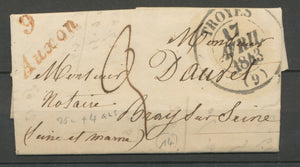 9
Auxon
TROYES
17
AVRIL
1843
(9)
Monsieur
Monsieur Dauvet
Notaire
Bray sur Seine
Seine et marne
3
(14)